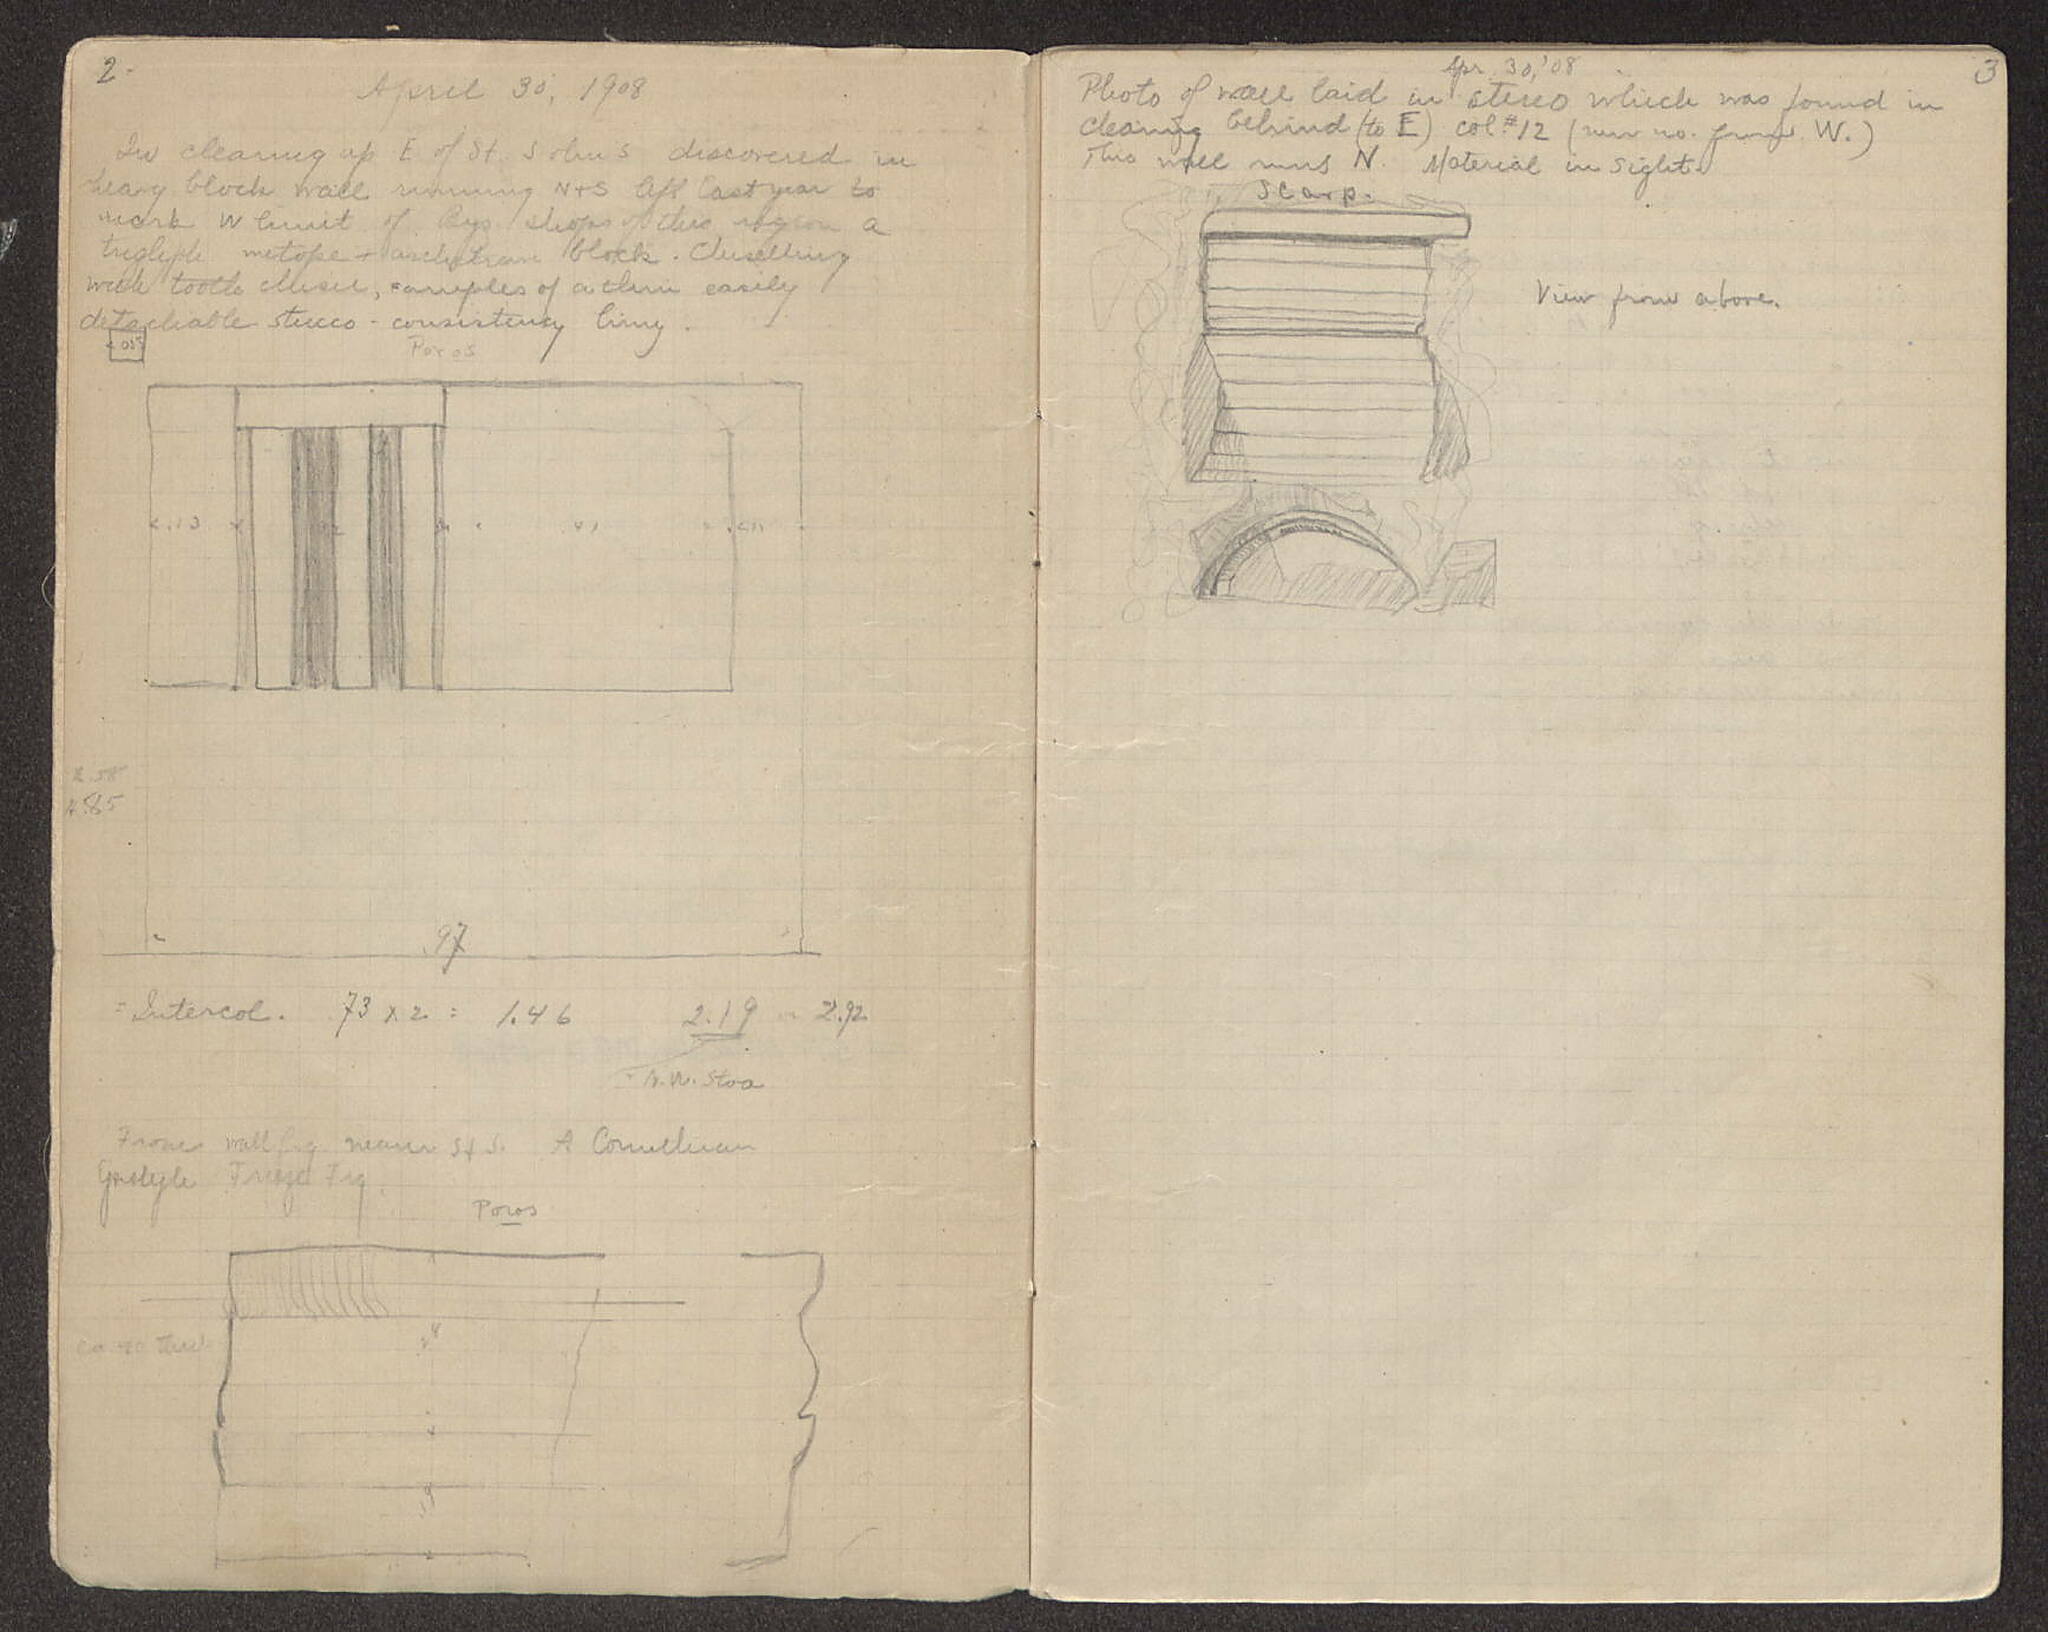 2.
April 30, 1908
In clearing up E of St. Johns discovered in
heavy block wall running N+S left last year to
mark W limit of Byz shops of this region a
triglyph metope + architrave block. Chiselling
with tooth chisel, samples of a thin easily
detachable stucco - consistency limy.
Poros
.13
.11
.85
.97
= Intercol. .73 x 2 = 1.46 2.19 or 2.92
N.W. Stoa
From wall frg. near St J. A Corinthian
Frieze Frg.
Poros
3
Apr. 30, '08
Photo of wall laid in stereo which was found in
clearing behind (to E) col. #12 (new no. from W.)
This wall runs N. Material in sight.
Scarp.
View from above.